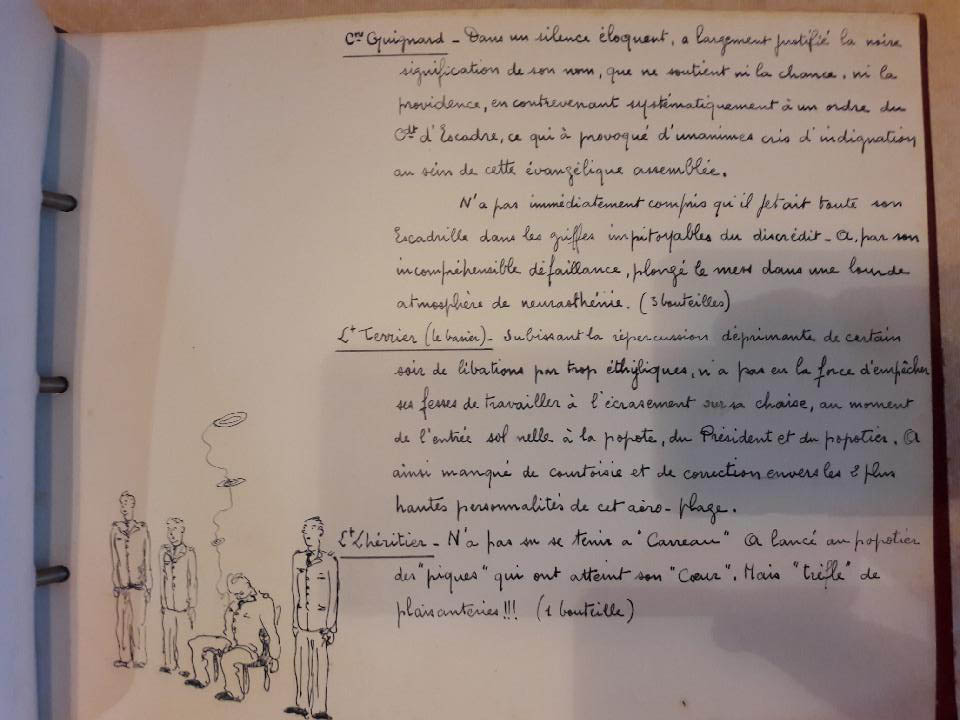 Cne Guignard - Dans un silence éloquent, a largement justifié la noire
signification de son nom, que ne soutient ni la chance, ni la
providence, en contrevenant systématiquement à un ordre du
Cdt d'Escadre, ce qui à provoqué d'unanimes cris d'indignation
au sein de cette évangélique assemblée.
N'a pas immédiatement compris qu'il jetait toute son
Escadrille dans les griffes impitoyables du discrédit - a, par son
incompréhensible défaillance, plongé le mess dans une lourde
atmosphère de neurasthénie. (3 bouteilles)
Lt Terrier (le barier) - Subissant la répercussion déprimante de certain
soir de libations par trop éthyliques, n'a pas eu la force d'empêcher
ses fesses de travailler à l'écrasement sur sa chaise, au moment
de l'entrée sol nelle à la popote, du Président et du popotier. A
ainsi manqué de courtoisie et de conviction envers les 2 plus
hautes personnalités de cet aéro-plage.
Lt Lhéritier - N'a pas su se tenir à "Carreau" A lancé au popotier
des "piques" qui ont atteint son "Cœur". Mais "trèfle" de
plaisanteries !!! (1 bouteille)